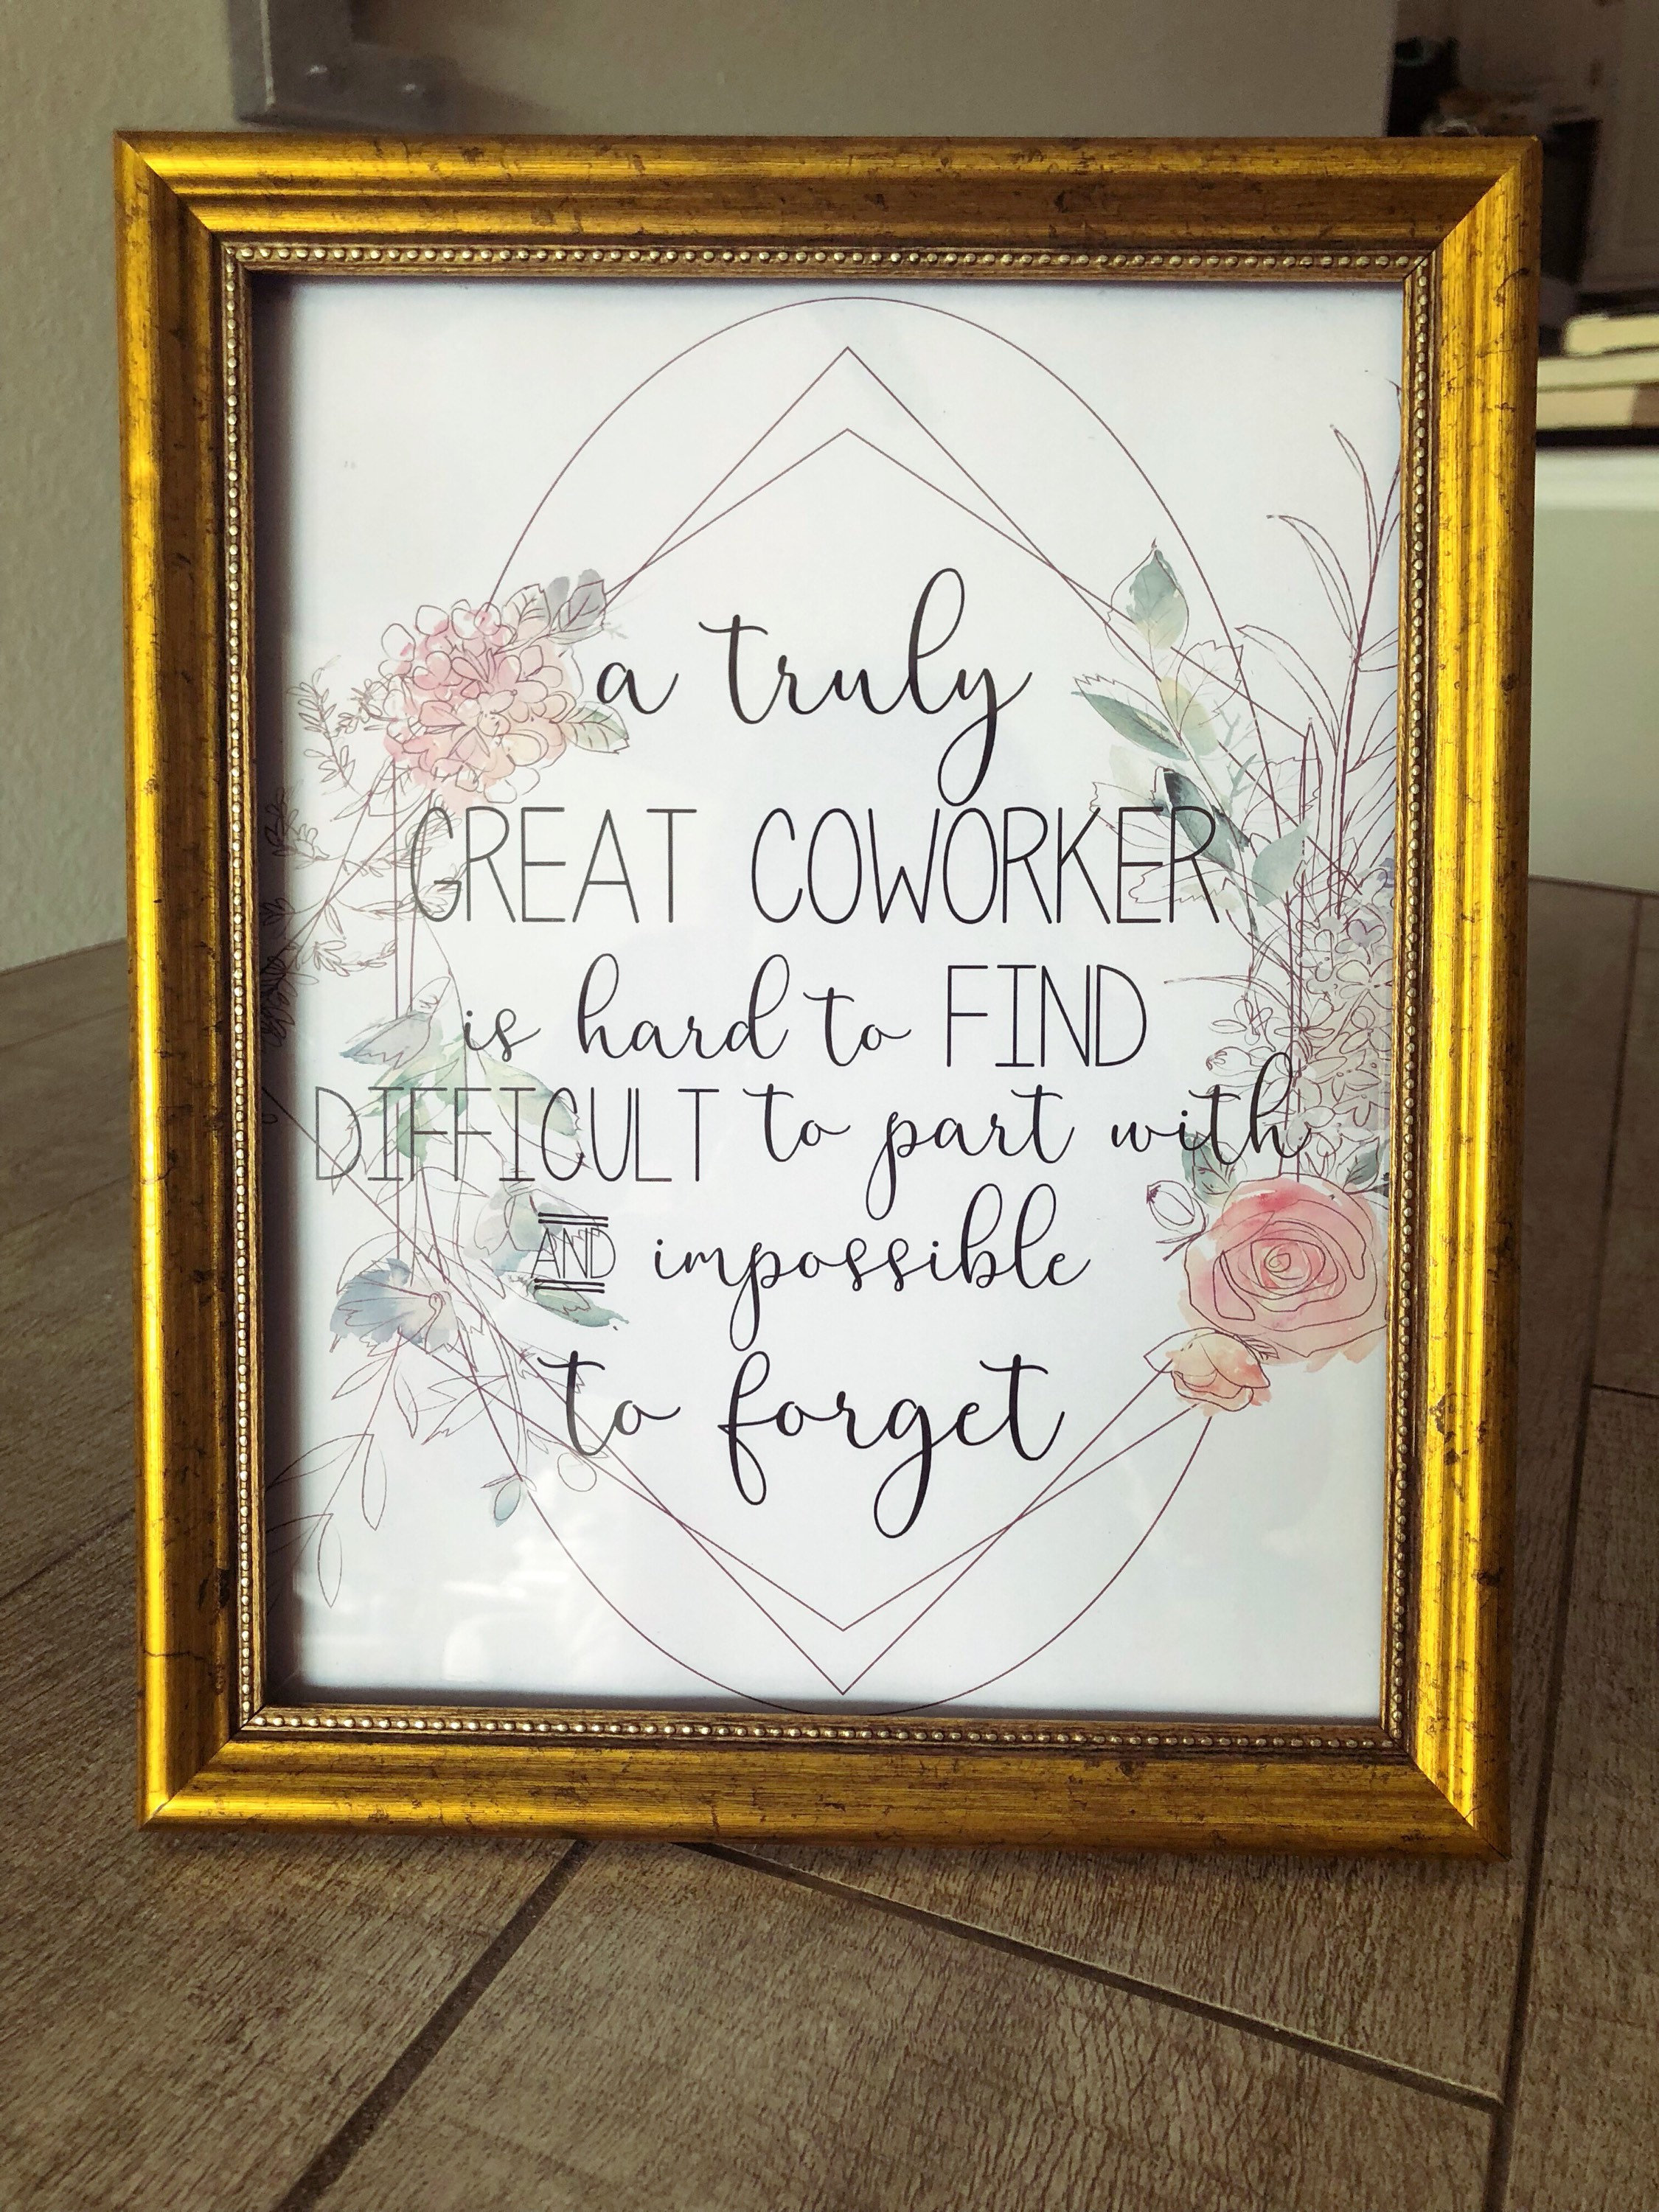 a truly
GREAT COWORKER
is hard to FIND
DIFFICULT to part with
AND impossible
to forget